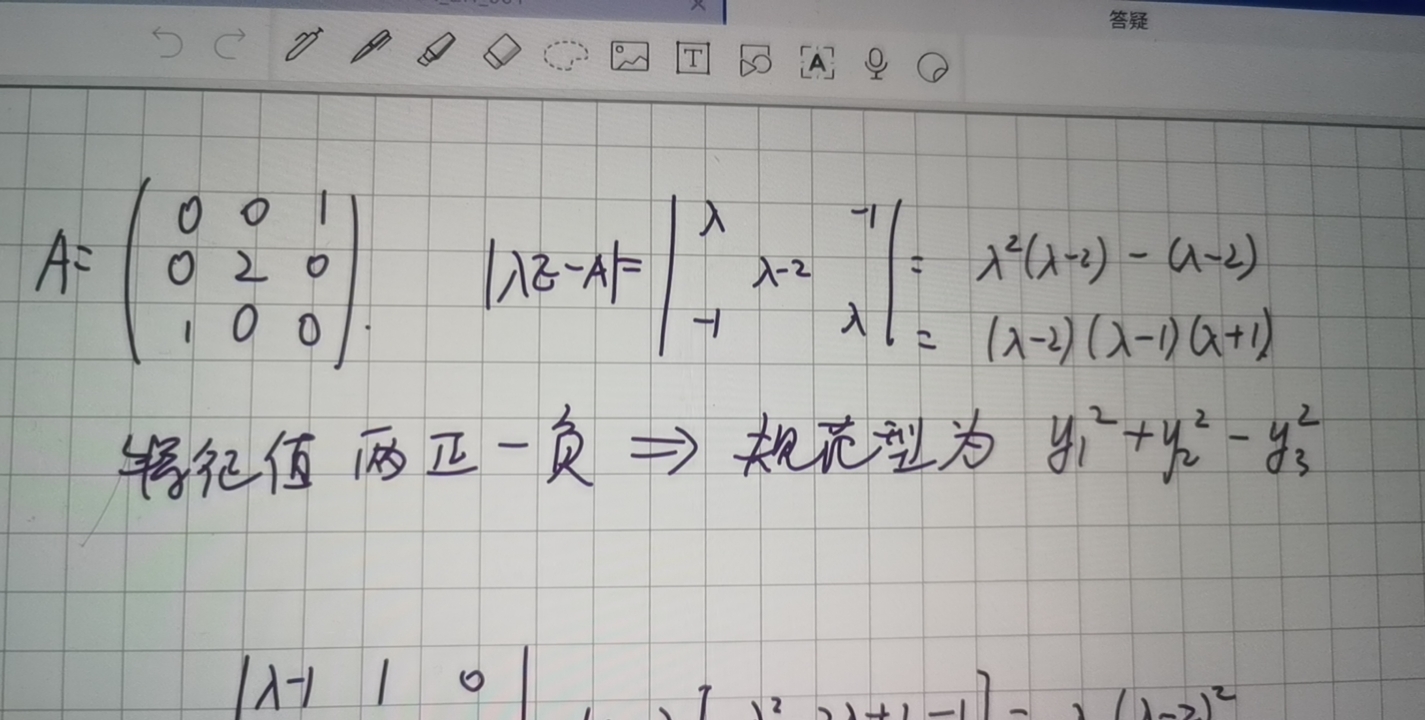 答疑
T
A
A= ( 0 0 1 0 2 0 1 0 0 ). |λE-A|= | λ -1 λ-2 -1 λ | = λ²(λ-2) - (λ-2)
= (λ-2)(λ-1)(λ+1)
特征值 两正一负 ⇒ 规范型为 y₁²+y₂²-y₃²
|λ-1 1 0|